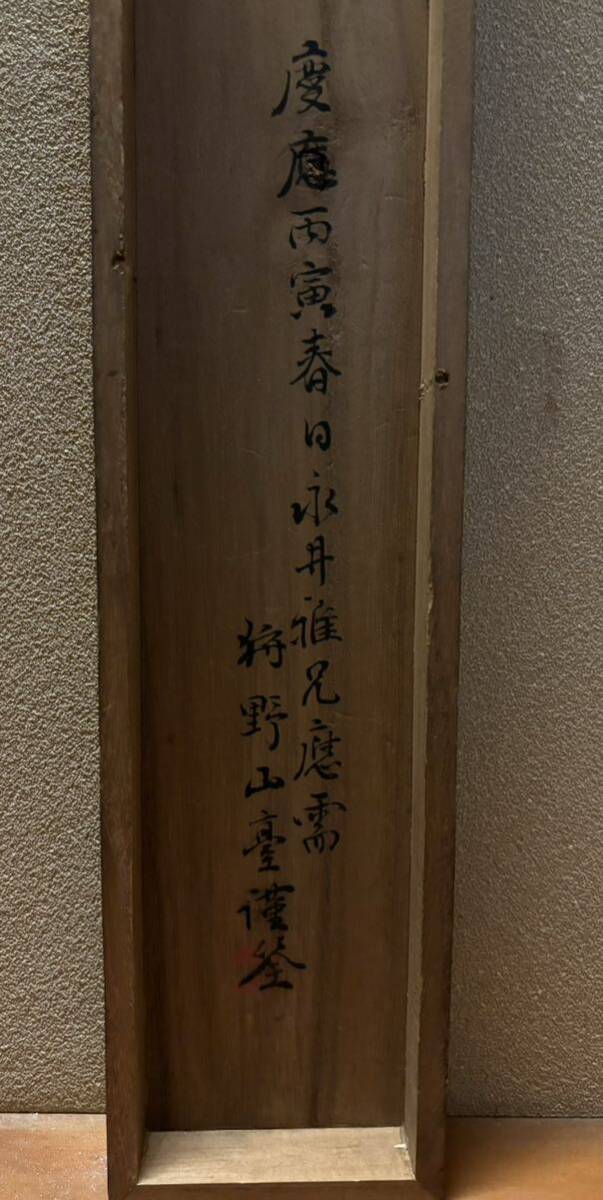 慶應丙寅春日永井雅兄應需
狩野山臺謹筌